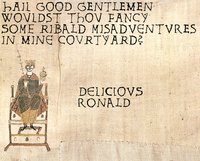 HAIL GOOD GENTLEMEN
WOULDST THOU FANCY
SOME RIBALD MISADVENTURES
IN MINE COURTYARD?
DELICIOUS
RONALD